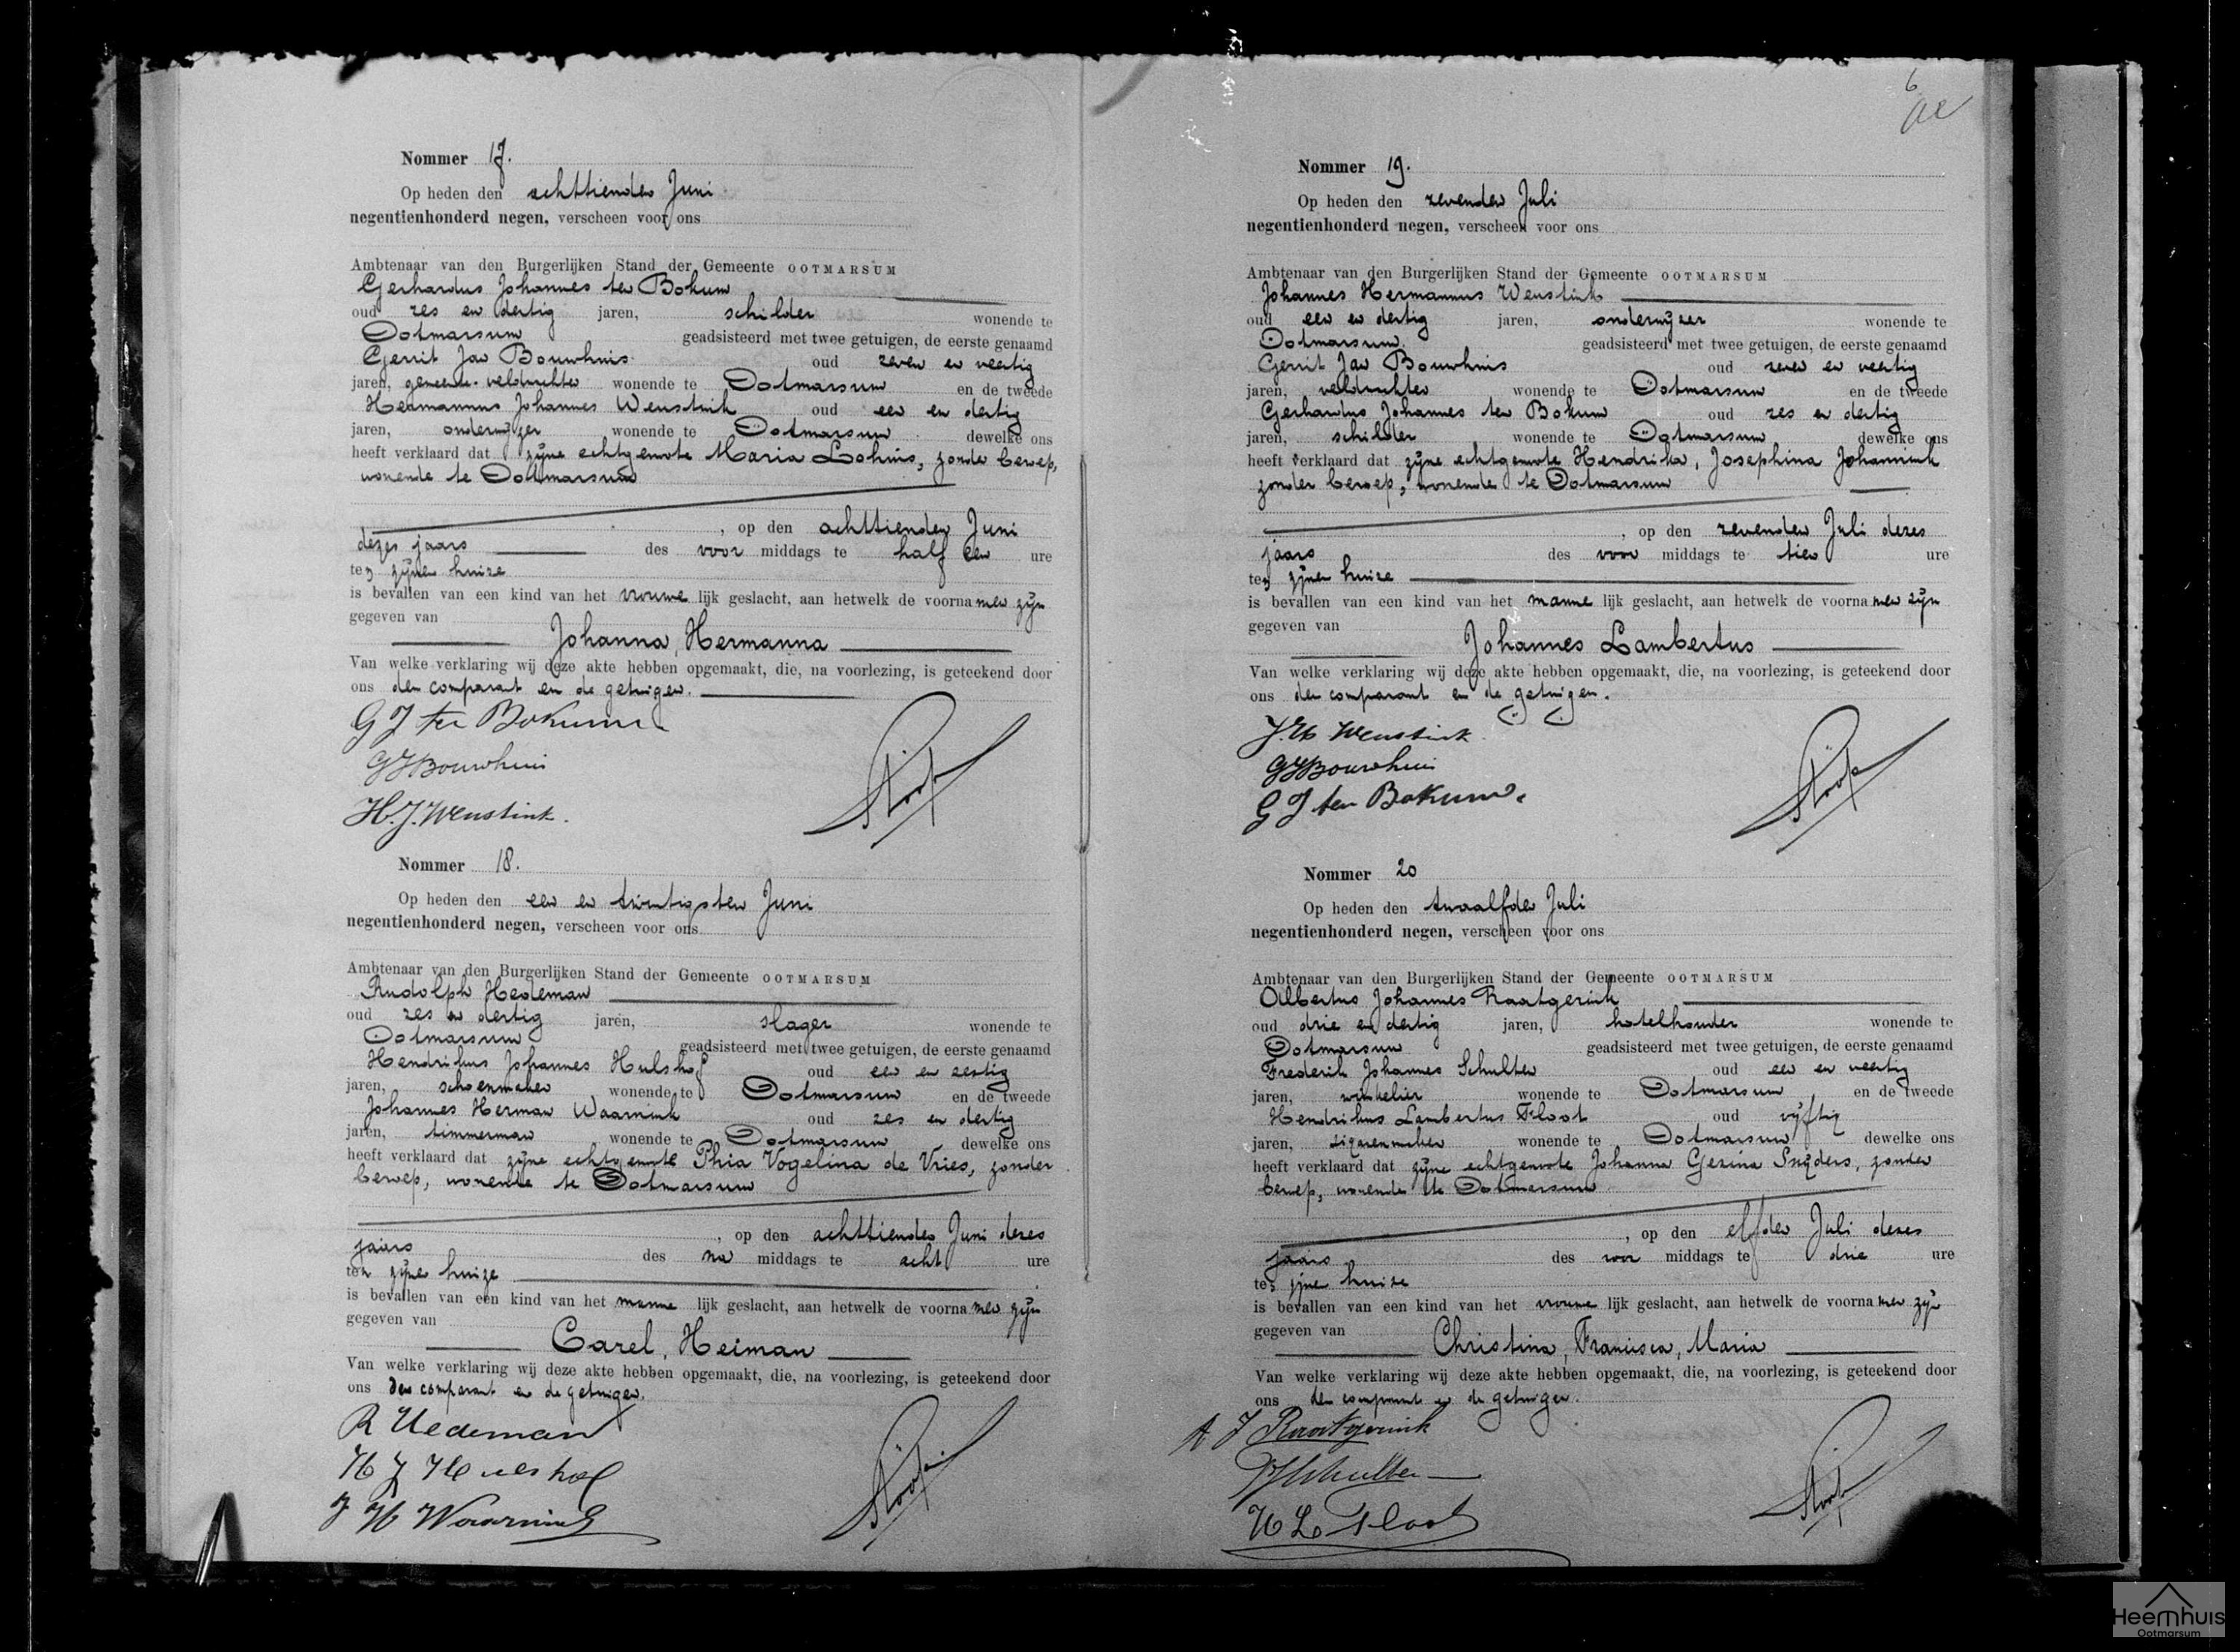 Nommer 17.
Op heden den achttienden Juni
negentienhonderd negen, verscheen voor ons
Ambtenaar van den Burgerlijken Stand der Gemeente OOTMARSUM
Gerhardus Johannes ten Bokum
oud zes en dertig jaren, schilder wonende te
Ootmarsum geadsisteerd met twee getuigen, de eerste genaamd
Gerrit Jan Bouwhuis oud zeven en veertig
jaren, gemeente-veldwachter wonende te Ootmarsum en de tweede
Hermannus Johannes Wenstink oud een en dertig
jaren, onderwijzer wonende te Ootmarsum dewelke ons
heeft verklaard dat zijne echtgenoote Maria Lohuis, zonder beroep,
wonende te Ootmarsum
, op den achttienden Juni
dezes jaars des voor middags te half een ure
ten zijnen huize
is bevallen van een kind van het vrouwe lijk geslacht, aan hetwelk de voorna men zijn
gegeven van
Johanna, Hermanna
Van welke verklaring wij deze akte hebben opgemaakt, die, na voorlezing, is geteekend door
ons den comparant en de getuigen.
G J ten Bokum
GJ Bouwhuis
H. J. Wenstink.
Nommer 18.
Op heden den een en twintigsten Juni
negentienhonderd negen, verscheen voor ons
Ambtenaar van den Burgerlijken Stand der Gemeente OOTMARSUM
Rudolph Hedeman
oud zes en dertig jaren, slager wonende te
Ootmarsum geadsisteerd met twee getuigen, de eerste genaamd
Hendrikus Johannes Hulshof oud een en zestig
jaren, schoenmaker wonende te Ootmarsum en de tweede
Johannes Herman Waarnink oud zes en dertig
jaren, timmerman wonende te Ootmarsum dewelke ons
heeft verklaard dat zijne echtgenoote Phia Vogelina de Vries, zonder
beroep, wonende te Ootmarsum
, op den achttienden Juni dezes
jaars des na middags te acht ure
ten zijnen huize
is bevallen van een kind van het manne lijk geslacht, aan hetwelk de voorna men zijn
gegeven van
Carel, Heiman
Van welke verklaring wij deze akte hebben opgemaakt, die, na voorlezing, is geteekend door
ons den comparant en de getuigen.
R Hedeman
H J Hulshof
J H Waarnink
Nommer 19.
Op heden den zevenden Juli
negentienhonderd negen, verscheen voor ons
Ambtenaar van den Burgerlijken Stand der Gemeente OOTMARSUM
Johannes Hermannus Wenstink
oud een en dertig jaren, onderwijzer wonende te
Ootmarsum geadsisteerd met twee getuigen, de eerste genaamd
Gerrit Jan Bouwhuis oud zeven en veertig
jaren, veldwachter wonende te Ootmarsum en de tweede
Gerhardus Johannes ten Bokum oud zes en dertig
jaren, schilder wonende te Ootmarsum dewelke ons
heeft verklaard dat zijne echtgenoote Hendrika, Josephina Johannink
zonder beroep, wonende te Ootmarsum
, op den zevenden Juli dezes
jaars des voor middags te tien ure
ten zijnen huize
is bevallen van een kind van het manne lijk geslacht, aan hetwelk de voorna men zijn
gegeven van
Johannes Lambertus
Van welke verklaring wij deze akte hebben opgemaakt, die, na voorlezing, is geteekend door
ons den comparant en de getuigen.
J. H Wenstink
GJ Bouwhuis
G J ten Bokum.
Nommer 20
Op heden den twaalfden Juli
negentienhonderd negen, verscheen voor ons
Ambtenaar van den Burgerlijken Stand der Gemeente OOTMARSUM
Albertus Johannes Raatgerink
oud drie en dertig jaren, hotelhouder wonende te
Ootmarsum geadsisteerd met twee getuigen, de eerste genaamd
Frederik Johannes Schulten oud een en veertig
jaren, winkelier wonende te Ootmarsum, en de tweede
Hendrikus Lambertus Floot oud vijftig
jaren, sigarenmaker wonende te Ootmarsum dewelke ons
heeft verklaard dat zijne echtgenoote Johanna Gezina Snijders, zonder
beroep, wonende te Ootmarsum
, op den elfden Juli dezes
jaars des voor middags te drie ure
ten zijnen huize
is bevallen van een kind van het vrouwe lijk geslacht, aan hetwelk de voorna men zijn
gegeven van
Christina, Francisca, Maria
Van welke verklaring wij deze akte hebben opgemaakt, die, na voorlezing, is geteekend door
ons den comparant en de getuigen.
A J Raatgerink
FJ Schulten
H L Floot
Heemhuis
Ootmarsum